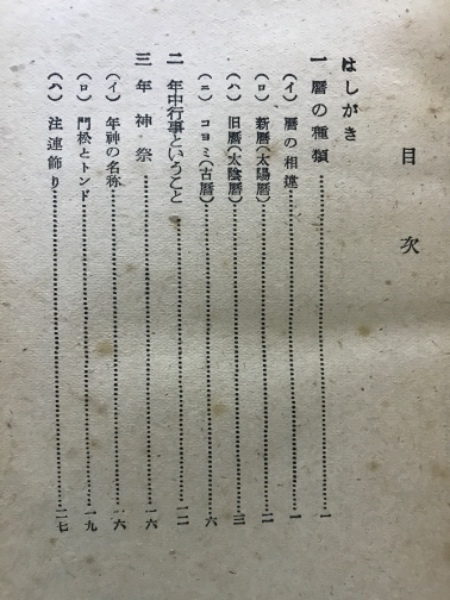 目次
はしがき
一 暦の種類……一
(イ) 暦の相違……一
(ロ) 新暦(太陽暦)……二
(ハ) 旧暦(太陰暦)……三
(ニ) コヨミ(古暦)……六
二 年中行事ということ……一二
三 年神祭……一六
(イ) 年神の名称……一六
(ロ) 門松とトンド……一九
(ハ) 注連飾り……二七